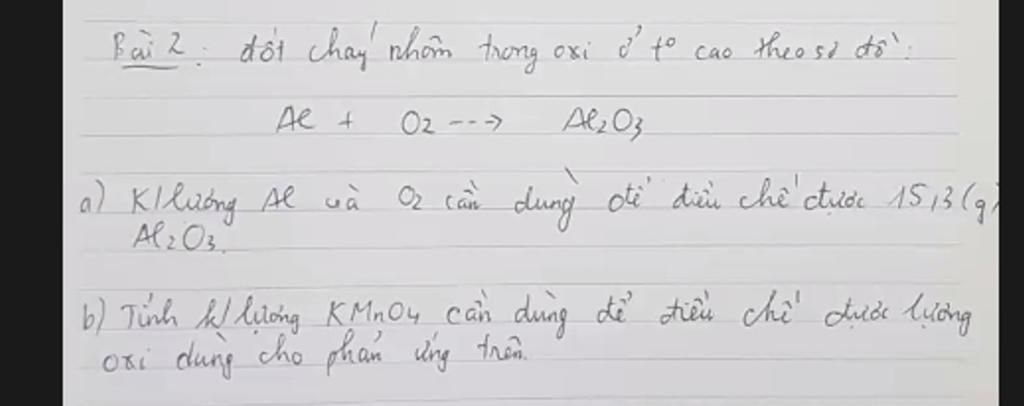 Bài 2: đốt cháy nhôm trong oxi ở t° cao theo sơ đồ:
Al + O2 ---> Al2O3
a) K/lượng Al và O2 cần dùng để điều chế được 15,3 (g)
Al2O3.
b) Tính k/lượng KMnO4 cần dùng để điều chế được lượng
oxi dùng cho phản ứng trên.